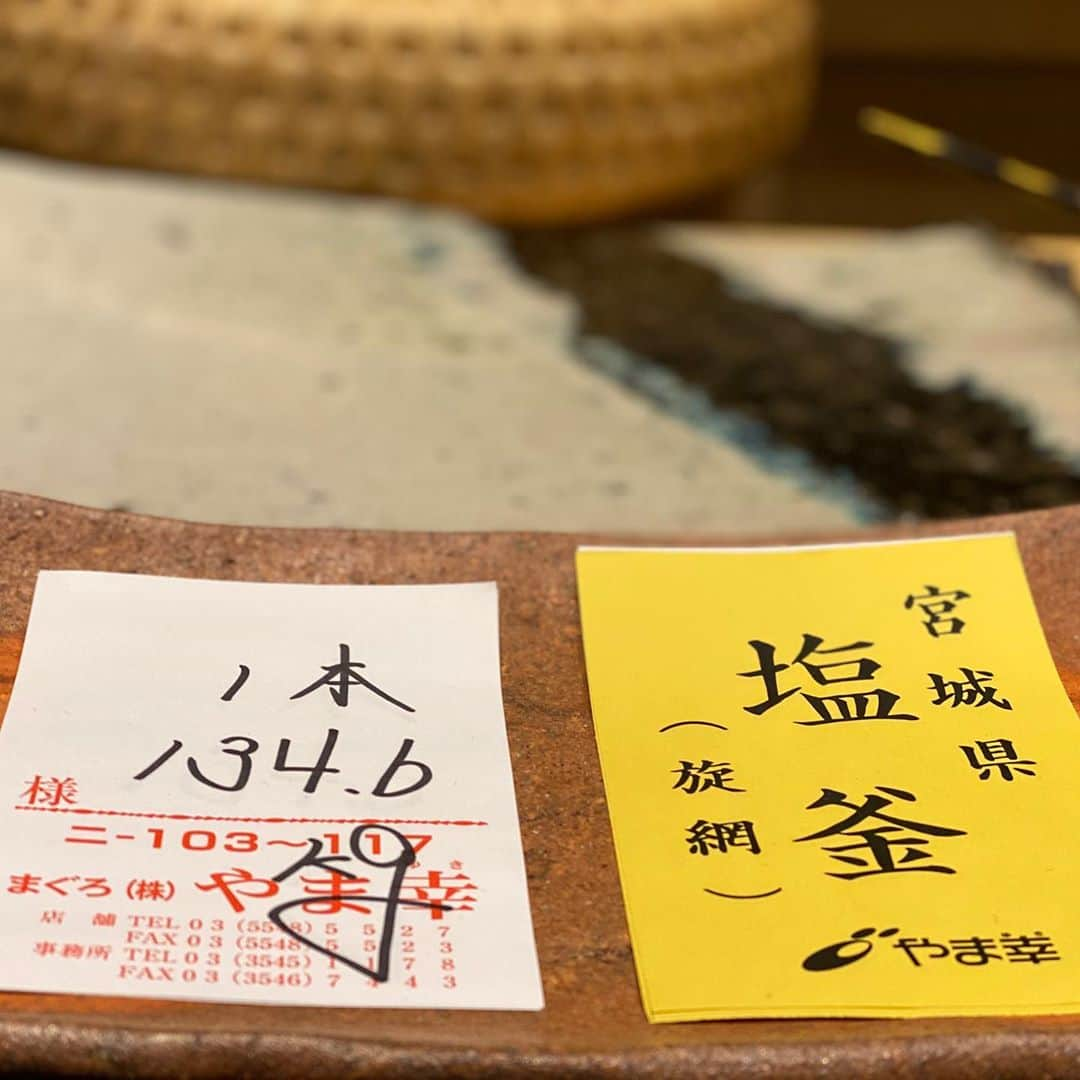 1本
134.6
様
ニ-103～117
まぐろ(株) やま幸
店舗 TEL 03 (5548) 5527
FAX 03 (5548) 5523
事務所 TEL 03 (3545) 1178
FAX 03 (3546) 7443
宮城県
塩釜
(旋網)
やま幸